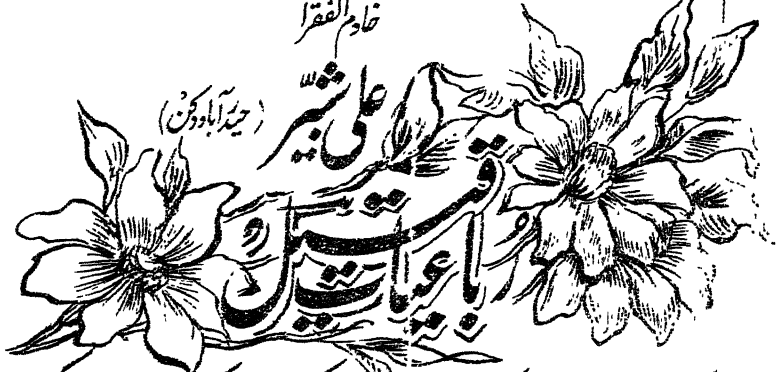 خادم الفقرا
علی شبّیر
(حیدرآباد دکن)
رباعیات قتیل